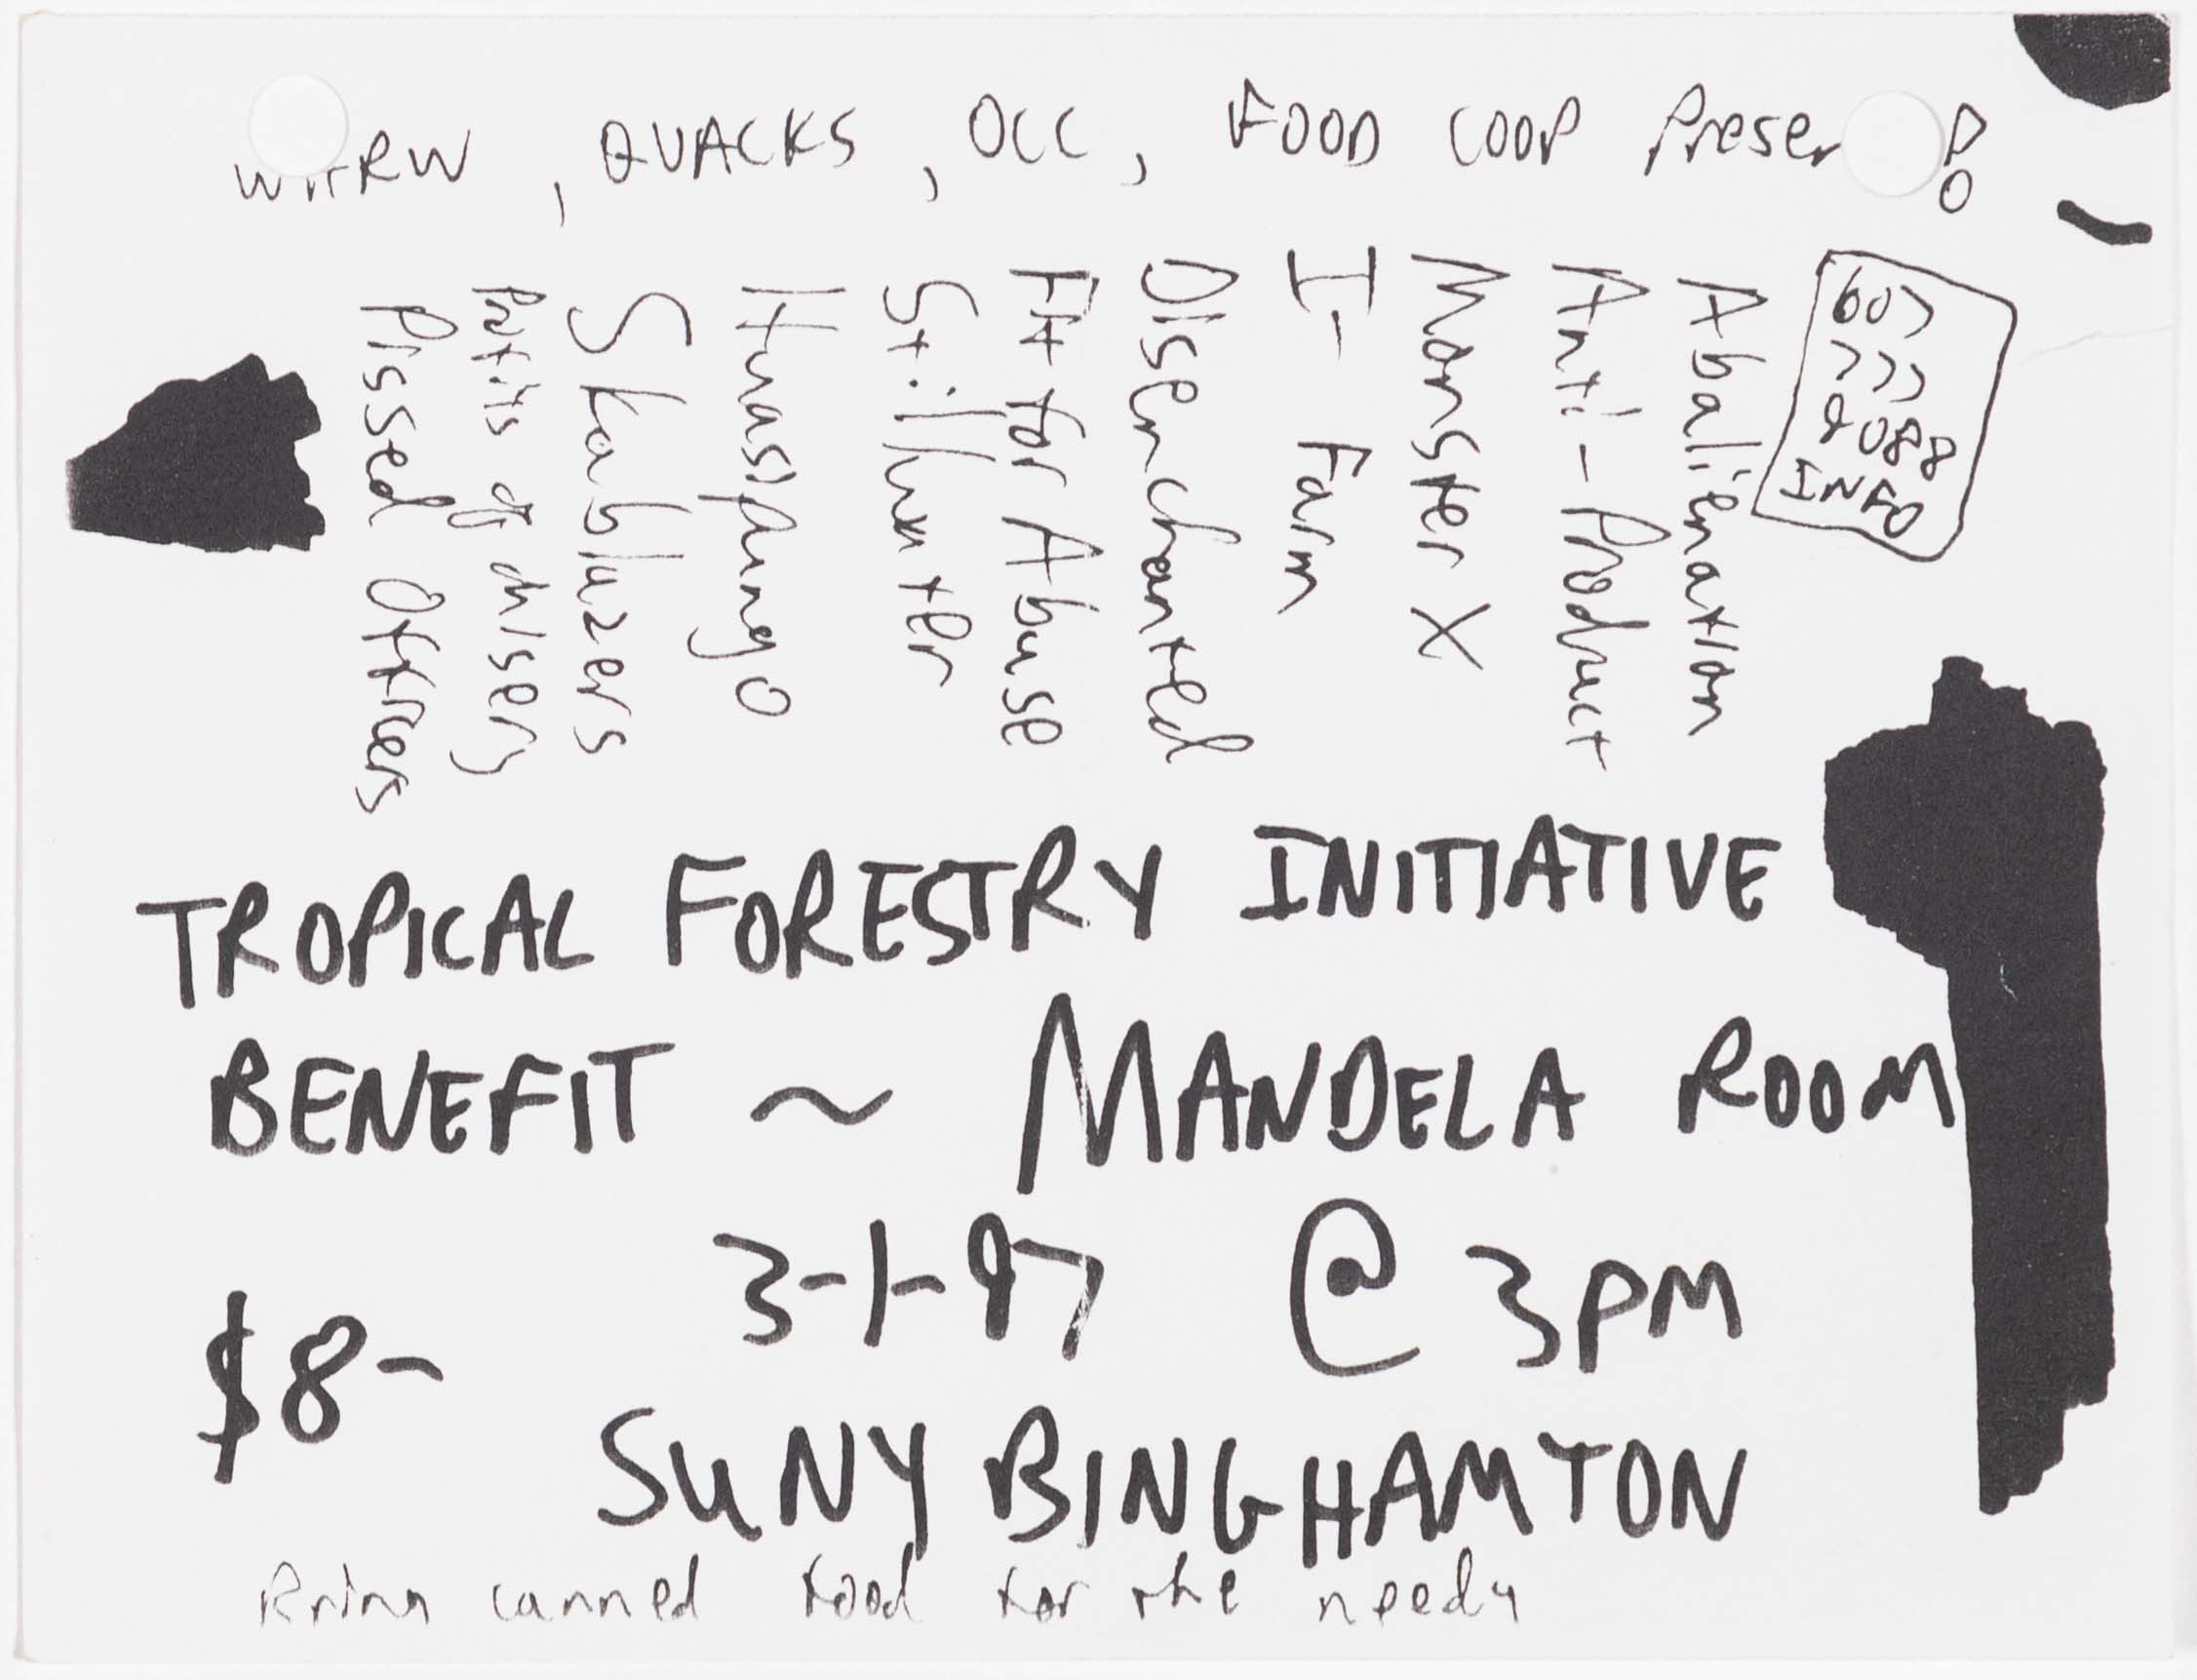 WHRW, QUACKS, OCC, FOOD COOP Present!
607
777
2088
INFO
Abalienation
Anti-Product
Monster X
I-Farm
Disenchanted
Fit for Abuse
Stillwater
Huasipungo
Skabluzers
Portraits of misery
Pissed Officers
TROPICAL FORESTRY INITIATIVE
BENEFIT ~ MANDELA ROOM
3-1-97 @ 3PM
$8-
SUNY BINGHAMTON
Bring canned food for the needy